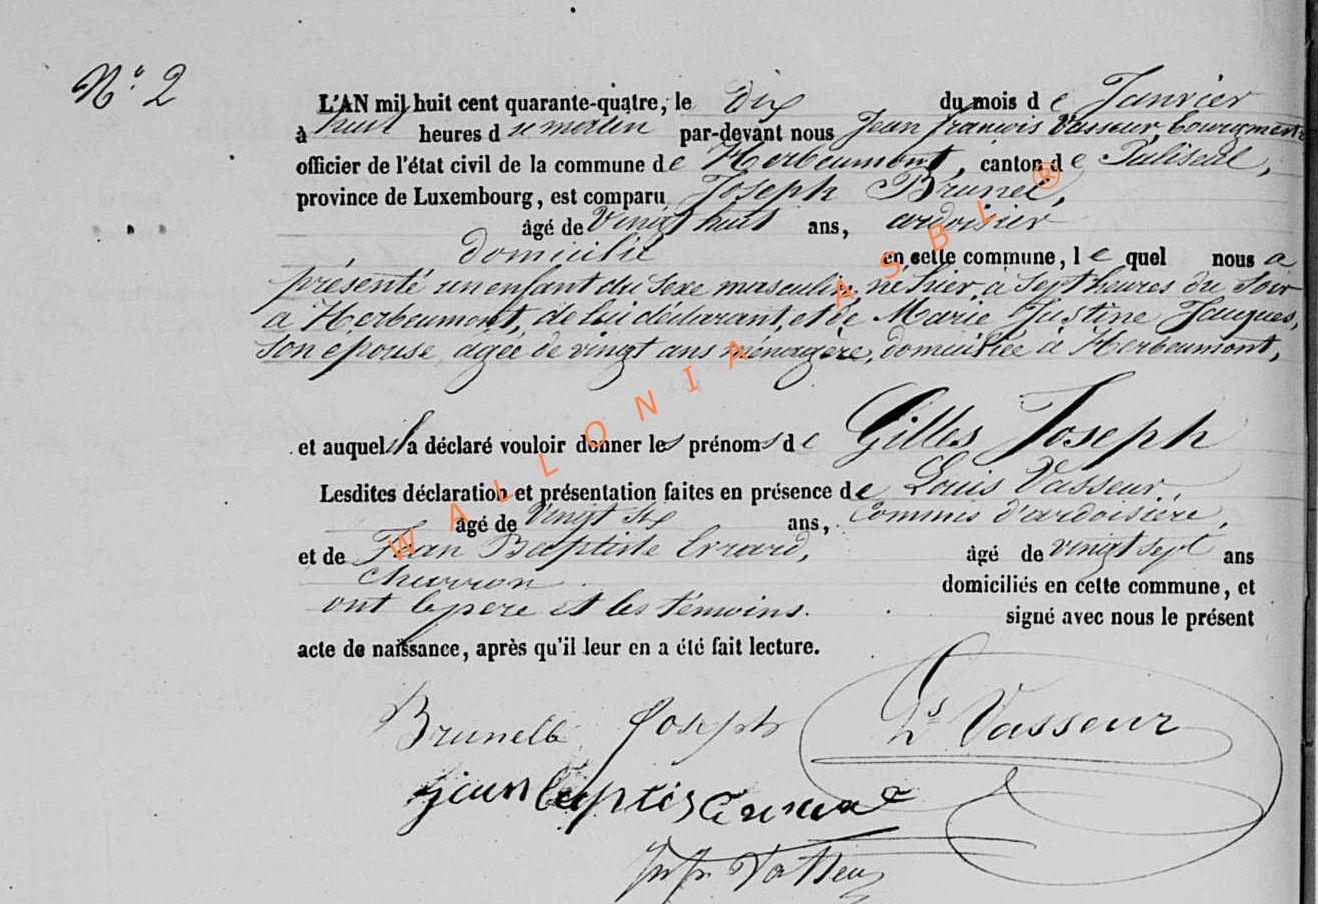 N° 2
L'AN mil huit cent quarante-quatre, le Dix du mois de Janvier
à huit heures du matin par-devant nous Jean françois Vasseur, bourgmestre
officier de l'état civil de la commune de Herbeumont, canton de Paliseul,
province de Luxembourg, est comparu Joseph Brunel,
âgé de Vingt huit ans, ardoisier
domicilié en cette commune, lequel nous a
présenté un enfant du sexe masculin, né hier à sept heures du soir
à Herbeumont, de lui déclarant, et de Marie Justine Jacques,
son épouse agée de vingt ans ménagère, domiciliée à Herbeumont,
et auquel il a déclaré vouloir donner les prénoms de Gilles Joseph
Lesdites déclaration et présentation faites en présence de Louis Vasseur,
âgé de Vingt six ans, Commis d'ardoisière,
et de Jean Baptiste Evrard, âgé de vingt sept ans
domiciliés en cette commune, et
ont le père et les témoins. signé avec nous le présent
acte de naissance, après qu'il leur en a été fait lecture.
Brunelle Joseph Ls Vasseur
jean baptis
Vasseur
WALLONIA ASBL ®